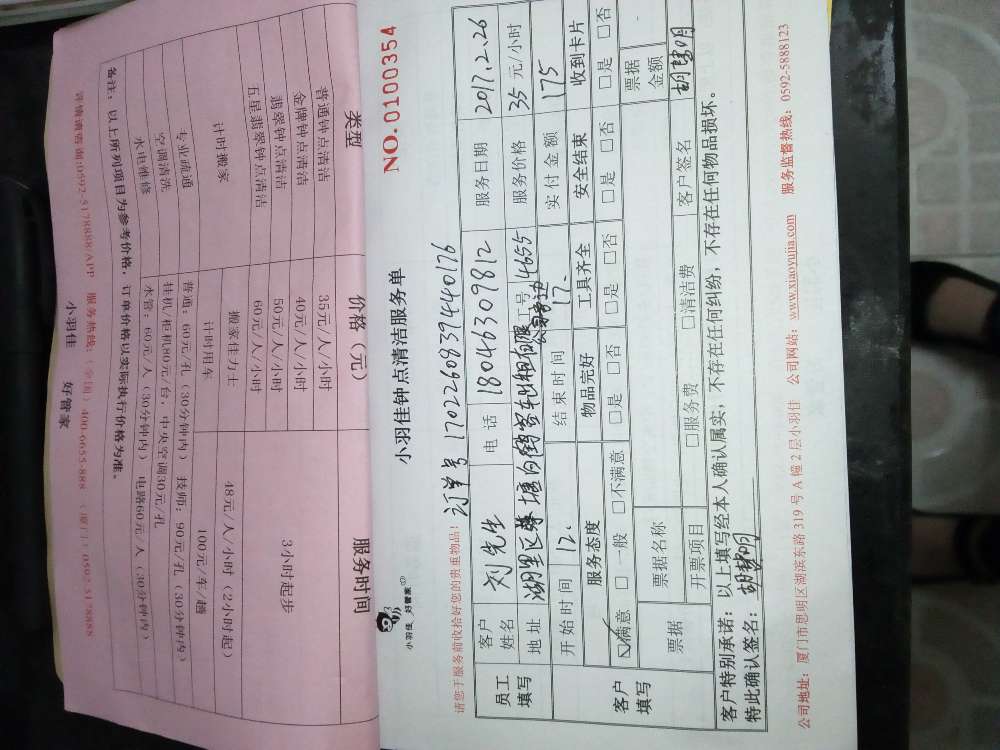 类型 价格（元） 服务时间
普通钟点清洁 35元/人/小时 3小时起步
金牌钟点清洁 40元/人/小时
翡翠钟点清洁 50元/人/小时
五星翡翠钟点清洁 60元/人/小时
计时搬家 搬家佳力士 48元/人/小时（2小时起）
计时用车 100元/车/趟
专业疏通 普通：60元/孔（30分钟内） 技师：90元/孔（30分钟内）
空调清洗 挂机/柜机80元/台，中央空调30元/孔
水电维修 水管：60元/人（30分钟内） 电路60元/人（30分钟内）
备注：以上所列项目为参考价格，订单价格以实际执行价格为准。
详情请咨询:0592-5178888/APP 服务热线：（全国）400-6655-888 （厦门）0592-5178888
小羽佳 好管家
小羽佳 好管家
小羽佳钟点清洁服务单
NO.0100354
请您于服务前收拾好您的贵重物品！
订单号 17022608394440176
员工填写
客户姓名 刘先生 电话 18046309812 服务日期 2017.2.26
地址 湖里区 工号 4655 服务价格 35元/小时
开始时间 12. 结束时间 17. 实付金额 175
客户填写
服务态度 物品完好 工具齐全 安全结束 收到卡片
☑满意 □一般 □不满意 □是 □否 □是 □否 □是 □否 □是 □否
票据 票据名称 □服务费 □清洁费 票据金额
开票项目 客户签名
客户特别承诺：以上填写经本人确认属实，不存在任何纠纷，不存在任何物品损坏。
特此确认签名：
公司地址：厦门市思明区湖滨东路319号A幢2层小羽佳 公司网站：www.xiaoyujia.com 服务监督热线：0592-5888123